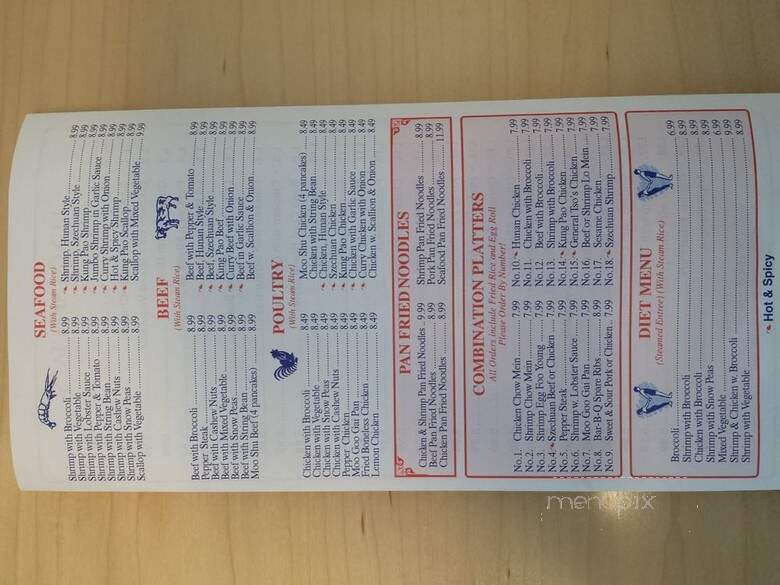 SEAFOOD
(With Steam Rice)
Shrimp with Broccoli 8.99
Shrimp with Vegetable 8.99
Shrimp with Lobster Sauce 8.99
Shrimp with Pepper & Tomato 8.99
Shrimp with String Bean 8.99
Shrimp with Cashew Nuts 8.99
Shrimp with Snow Peas 8.99
Scallop with Vegetable 8.99
Shrimp, Hunan Style 8.99
Shrimp, Szechuan Style 8.99
Kung Pao Shrimp 8.99
Jumbo Shrimp in Garlic Sauce 8.99
Curry Shrimp with Onion 8.99
Hot & Spicy Shrimp 8.99
Kung Pao Scallop 8.99
Scallop with Mixed Vegetable 9.99
BEEF
(With Steam Rice)
Beef with Broccoli 8.99
Pepper Steak 8.99
Beef with Cashew Nuts 8.99
Beef with Mixed Vegetable 8.99
Beef with Snow Peas 8.99
Beef with String Bean 8.99
Moo Shu Beef (4 pancakes) 8.99
Beef with Pepper & Tomato 8.99
Beef, Hunan Style 8.99
Beef, Szechuan Style 8.99
Kung Pao Beef 8.99
Curry Beef with Onion 8.99
Beef in Garlic Sauce 8.99
Beef w. Scallion & Onion 8.99
POULTRY
(With Steam Rice)
Chicken with Broccoli 8.49
Chicken with Vegetable 8.49
Chicken with Snow Peas 8.49
Chicken with Cashew Nuts 8.49
Pepper Chicken 8.49
Moo Goo Gai Pan 8.49
Fried Boneless Chicken 8.49
Lemon Chicken 8.49
Moo Shu Chicken (4 pancakes) 8.49
Chicken with String Bean 8.49
Chicken, Hunan Style 8.49
Szechuan Chicken 8.49
Kung Pao Chicken 8.49
Chicken with Garlic Sauce 8.49
Curry Chicken with Onion 8.49
Chicken w. Scallion & Onion 8.49
PAN FRIED NOODLES
Chicken & Shrimp Pan Fried Noodles 9.99
Beef Pan Fried Noodles 8.99
Chicken Pan Fried Noodles 8.99
Shrimp Pan Fried Noodles 8.99
Pork Pan Fried Noodles 8.99
Seafood Pan Fried Noodles 11.99
COMBINATION PLATTERS
All Orders Include Fried Rice and Egg Roll
Please Order By Number
No.1. Chicken Chow Mein 7.99
No.2. Shrimp Chow Mein 7.99
No.3. Shrimp Egg Foo Young 7.99
No.4. Szechuan Beef or Chicken 7.99
No.5. Pepper Steak 7.99
No.6. Shrimp w. Lobster Sauce 7.99
No.7. Moo Goo Gai Pan 7.99
No.8. Bar-B-Q Spare Ribs 8.99
No.9. Sweet & Sour Pork or Chicken 7.99
No.10. Hunan Chicken 7.99
No.11. Chicken with Broccoli 7.99
No.12. Beef with Broccoli 7.99
No.13. Shrimp with Broccoli 7.99
No.14. Kung Pao Chicken 7.99
No.15. General Tso's Chicken 7.99
No.16. Beef or Shrimp Lo Mein 7.99
No.17. Sesame Chicken 7.99
No.18. Szechuan Shrimp 7.99
DIET MENU
(Steamed Entree) (With Steam Rice)
Broccoli 6.99
Shrimp with Broccoli 8.99
Chicken with Broccoli 8.99
Shrimp with Snow Peas 8.99
Mixed Vegetable 6.99
Shrimp & Chicken w. Broccoli 9.99
Shrimp with Vegetable 8.99
Hot & Spicy
menupix